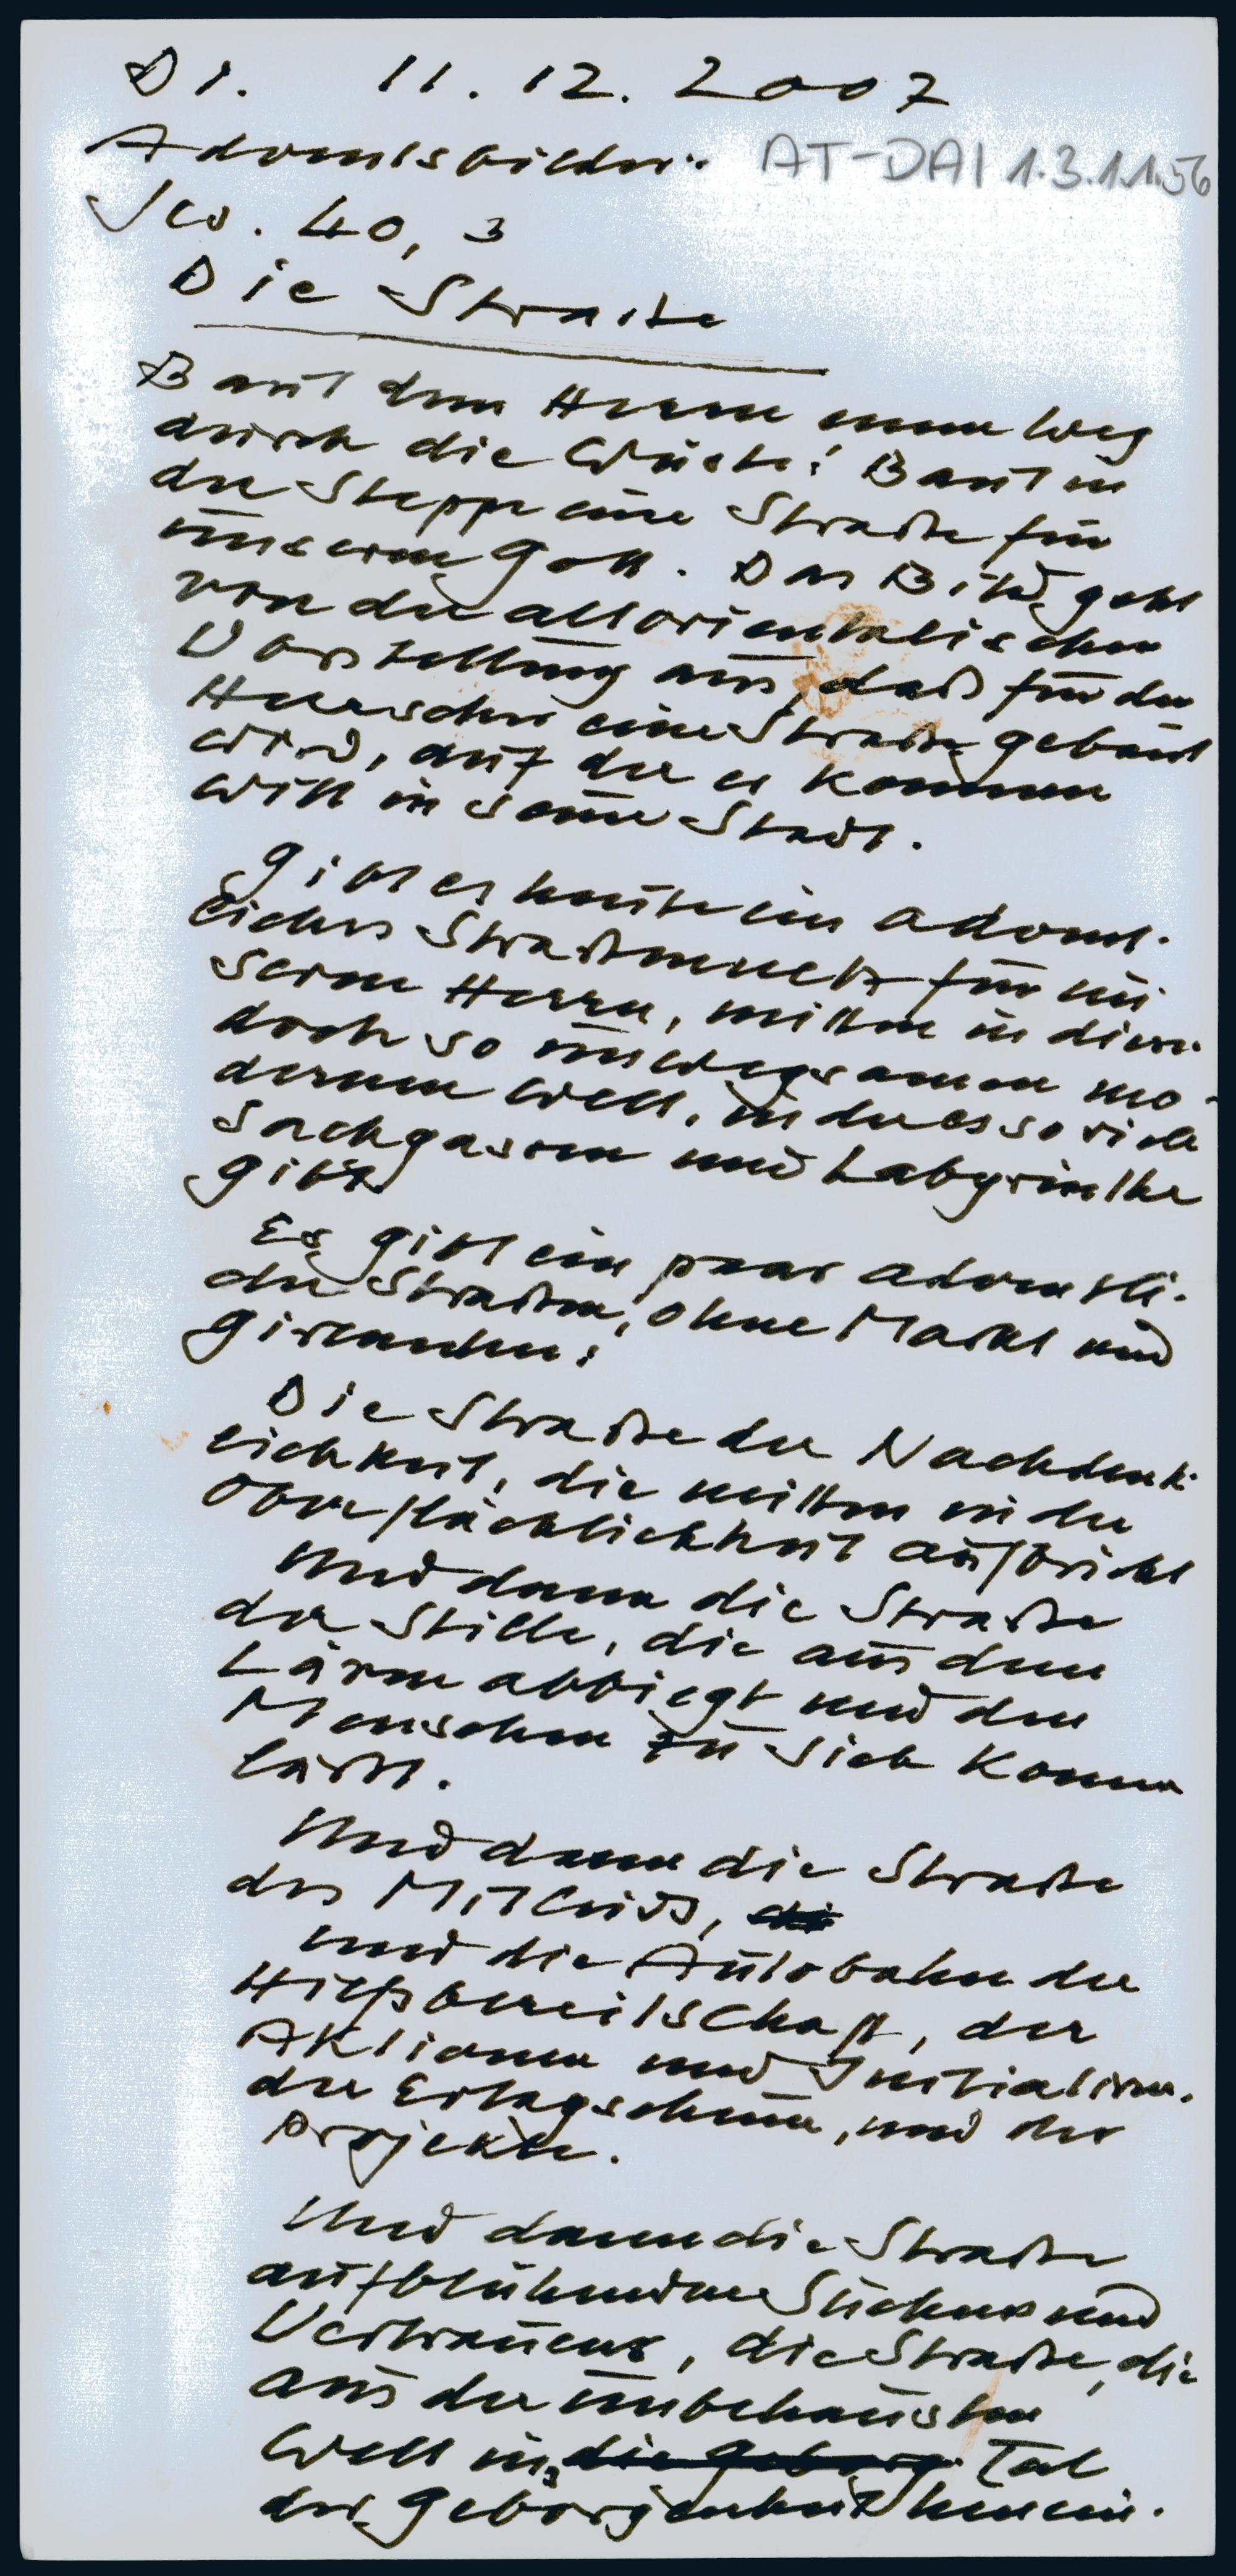 Di. 11.12.2007
Adventsbilder:
AT-DAI 1.3.1.1.56
Jes. 40, 3
Die Straße
Baut dem Herrn einen Weg
durch die Wüste! Baut in
der Steppe eine Straße für
unseren Gott. Das Bild geht
von der altorientalischen
Vorstellung aus, daß für den
Herrscher eine Straße gebaut
wird, auf der er kommen
will in seine Stadt.
Gibt es heute ein advent-
liches Straßennetz für un
seren Herrn, mitten in dieser
doch so unwegsamen mo-
dernen Welt, in der es so viele
Sackgassen und Labyrinthe
gibt
Es gibt ein paar adventli-
che Straßen, ohne Markt und
Girlanden:
Die Straße der Nachdenk-
lichkeit, die mitten in der
Oberflächlichkeit aufbricht
Und dann die Straße
der Stille, die aus dem
Lärm abbiegt und den
Menschen zu sich kommen
läßt.
Und dann die Straße
des Mitleids,
und die Autobahn der
Hilfsbereitschaft, der
Aktionen und Initiativen.
der Erlagscheine, und der
Projekte.
Und dann die Straße
aufblühenden Suchens und
Vertrauens, die Straße, die
aus der unbehausten
Welt ins die Geborg. Tal
der Geborgenheit hinein.